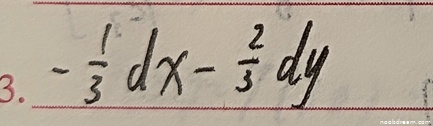 3. -1/3 dx - 2/3 dy
noobdream.com